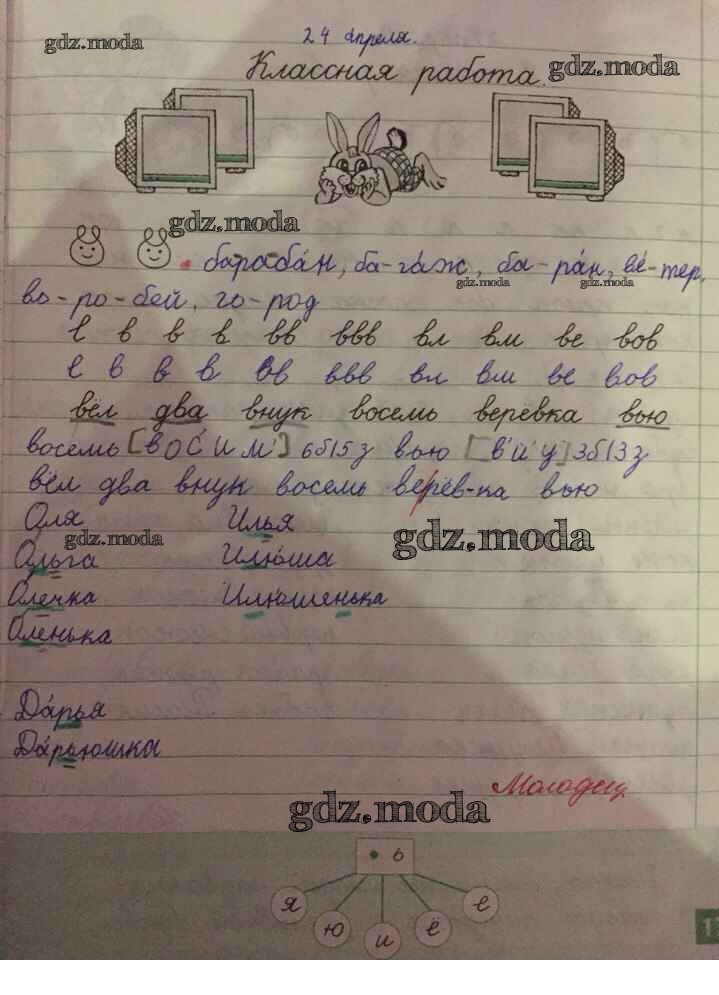 24 апреля.
gdz.moda
Классная работа.
gdz.moda
gdz.moda
барабан, ба-гаж, ба-ран, ве-тер,
gdz.moda gdz.moda
во-ро-бей, го-род
в в в вв ввв вл вм ве вов
в в в вв ввв вл вм ве вов
вёл два внук восемь верёвка вью
восемь [вос'им'] 6б15з вью [в'й'у] 3б13з
вёл два внук восемь верёв-ка вью
Оля Илья
gdz.moda gdz.moda
Ольга Илюша
Олечка Илюшенька
Оленька
Дарья
Дарьюшка
Молодец
gdz.moda
ь
я ю и ё е
gdz.moda gdz.moda
1